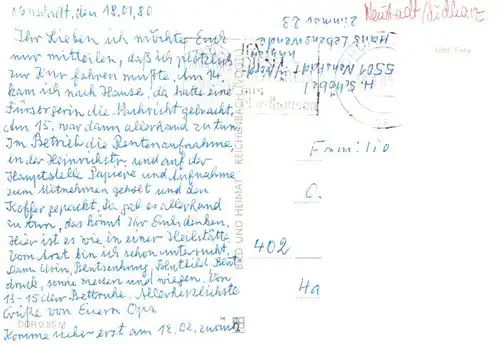 Neustadt, den 18.01.80
Ihr Lieben ich möchte Euch
nur mitteilen, daß ich plötzlich
zur Kur fahren mußte. Am 14.
kam ich nach Hause, da hatte eine
Fürsorgerin die Nachricht gebracht.
Am 15. war dann allerhand zu tun.
Im Betrieb die Rentenaufnahme,
in der Heinrichstr. und auf der
Hauptstelle Papiere und Aufnahme
zum Mitnehmen geholt und den
Koffer gepackt. Da gab es allerhand
zu tun, das könnt Ihr Euch denken.
Hier ist es wie in einer Heilstätte
vom Arzt bin ich schon untersucht.
Dann Urin, Blutsenkung, Blutbild Blut
druck, sowie messen und wiegen. Von
13-15 Uhr Bettruhe. Allerherzlichste
Grüße von Euern Opa
Komme sicher erst am 12.02. zurück
DDR 0,25 M
BILD UND HEIMAT · REICHENBACH (VOGTL)
Neustadt/Südharz
Echt Foto
H. Schöbel
5501 Neustadt
Haus Lebenswende
Zimmer 23
Familie
C.
402
4a